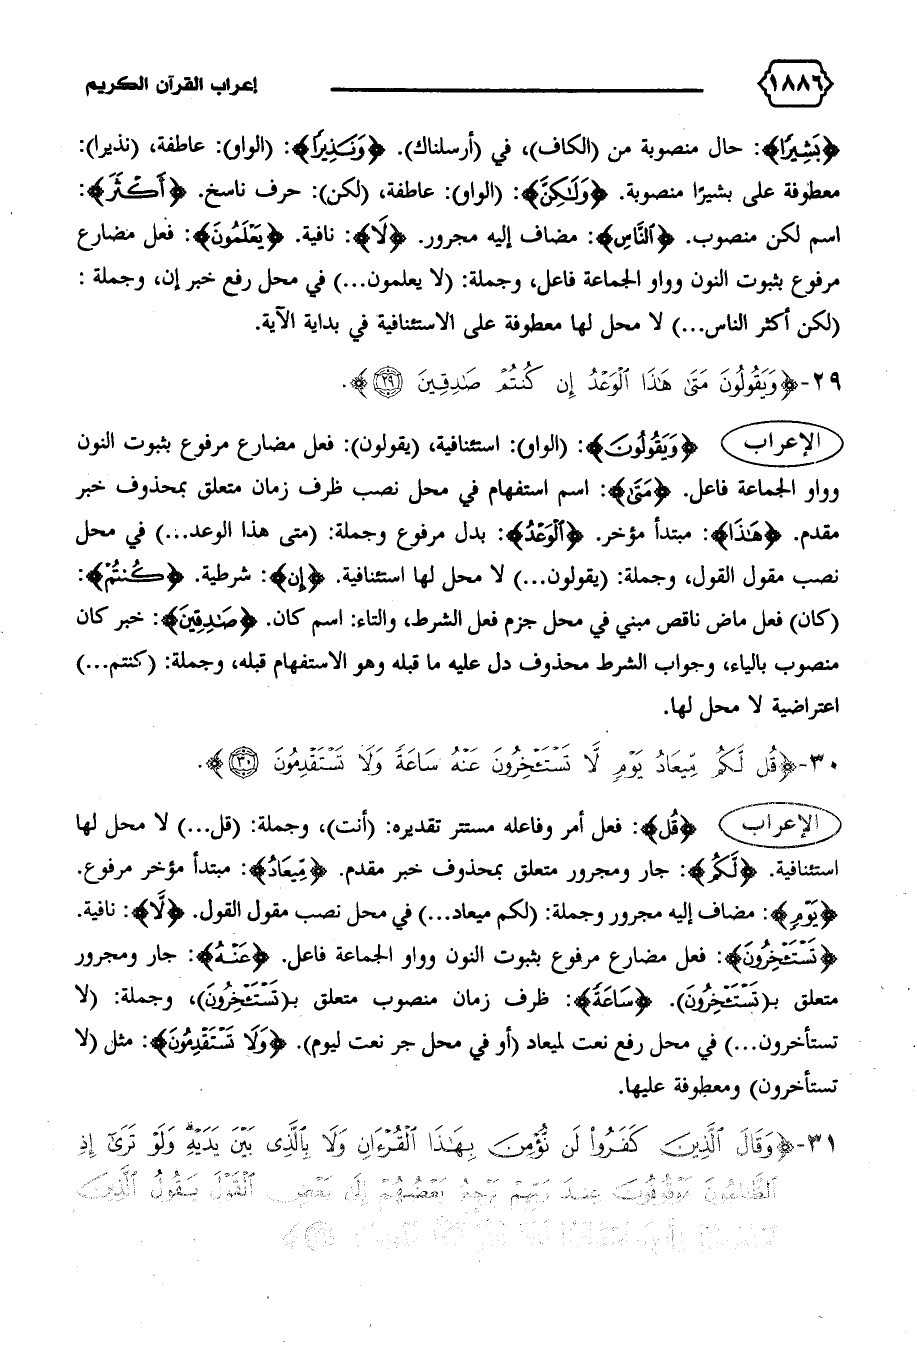 ١٨٨٦ إعراب القرآن الكريم
﴿بَشِيرًا﴾: حال منصوبة من (الكاف)، في (أرسلناك). ﴿وَنَذِيرًا﴾: (الواو): عاطفة، (نذيرا):
معطوفة على بشيرًا منصوبة. ﴿وَلَٰكِنَّ﴾: (الواو): عاطفة، (لكن): حرف ناسخ. ﴿أَكْثَرَ﴾:
اسم لكن منصوب. ﴿النَّاسِ﴾: مضاف إليه مجرور. ﴿لَا﴾: نافية. ﴿يَعْلَمُونَ﴾: فعل مضارع
مرفوع بثبوت النون وواو الجماعة فاعل، وجملة: (لا يعلمون...) في محل رفع خبر إن، وجملة :
(لكن أكثر الناس...) لا محل لها معطوفة على الاستئنافية في بداية الآية.
٢٩-﴿وَيَقُولُونَ مَتَىٰ هَٰذَا الْوَعْدُ إِن كُنتُمْ صَٰدِقِينَ ٢٩﴾.
الإعراب ﴿وَيَقُولُونَ﴾: (الواو): استئنافية، (يقولون): فعل مضارع مرفوع بثبوت النون
وواو الجماعة فاعل. ﴿مَتَىٰ﴾: اسم استفهام في محل نصب ظرف زمان متعلق بمحذوف خبر
مقدم. ﴿هَٰذَا﴾: مبتدأ مؤخر. ﴿الْوَعْدُ﴾: بدل مرفوع وجملة: (متى هذا الوعد...) في محل
نصب مقول القول، وجملة: (يقولون...) لا محل لها استئنافية. ﴿إِن﴾: شرطية. ﴿كُنتُمْ﴾:
(كان) فعل ماض ناقص مبني في محل جزم فعل الشرط، والتاء: اسم كان. ﴿صَٰدِقِينَ﴾: خبر كان
منصوب بالياء، وجواب الشرط محذوف دل عليه ما قبله وهو الاستفهام قبله، وجملة: (كنتم...)
اعتراضية لا محل لها.
٣٠-﴿قُل لَّكُم مِّيعَادُ يَوْمٍ لَّا تَسْتَـْٔخِرُونَ عَنْهُ سَاعَةً وَلَا تَسْتَقْدِمُونَ ٣٠﴾.
الإعراب ﴿قُل﴾: فعل أمر وفاعله مستتر تقديره: (أنت)، وجملة: (قل...) لا محل لها
استئنافية. ﴿لَّكُم﴾: جار ومجرور متعلق بمحذوف خبر مقدم. ﴿مِّيعَادُ﴾: مبتدأ مؤخر مرفوع.
﴿يَوْمٍ﴾: مضاف إليه مجرور وجملة: (لكم ميعاد...) في محل نصب مقول القول. ﴿لَّا﴾: نافية.
﴿تَسْتَـْٔخِرُونَ﴾: فعل مضارع مرفوع بثبوت النون وواو الجماعة فاعل. ﴿عَنْهُ﴾: جار ومجرور
متعلق بـ(تَسْتَـْٔخِرُونَ). ﴿سَاعَةً﴾: ظرف زمان منصوب متعلق بـ(تَسْتَـْٔخِرُونَ)، وجملة: (لا
تستأخرون...) في محل رفع نعت لميعاد (أو في محل جر نعت ليوم). ﴿وَلَا تَسْتَقْدِمُونَ﴾: مثل (لا
تستأخرون) ومعطوفة عليها.
٣١-﴿وَقَالَ الَّذِينَ كَفَرُوا لَن نُّؤْمِنَ بِهَٰذَا الْقُرْءَانِ وَلَا بِالَّذِى بَيْنَ يَدَيْهِ وَلَوْ تَرَىٰٓ إِذِ
الظَّٰلِمُونَ مَوْقُوفُونَ عِندَ رَبِّهِمْ يَرْجِعُ بَعْضُهُمْ إِلَىٰ بَعْضٍ الْقَوْلَ يَقُولُ الَّذِينَ